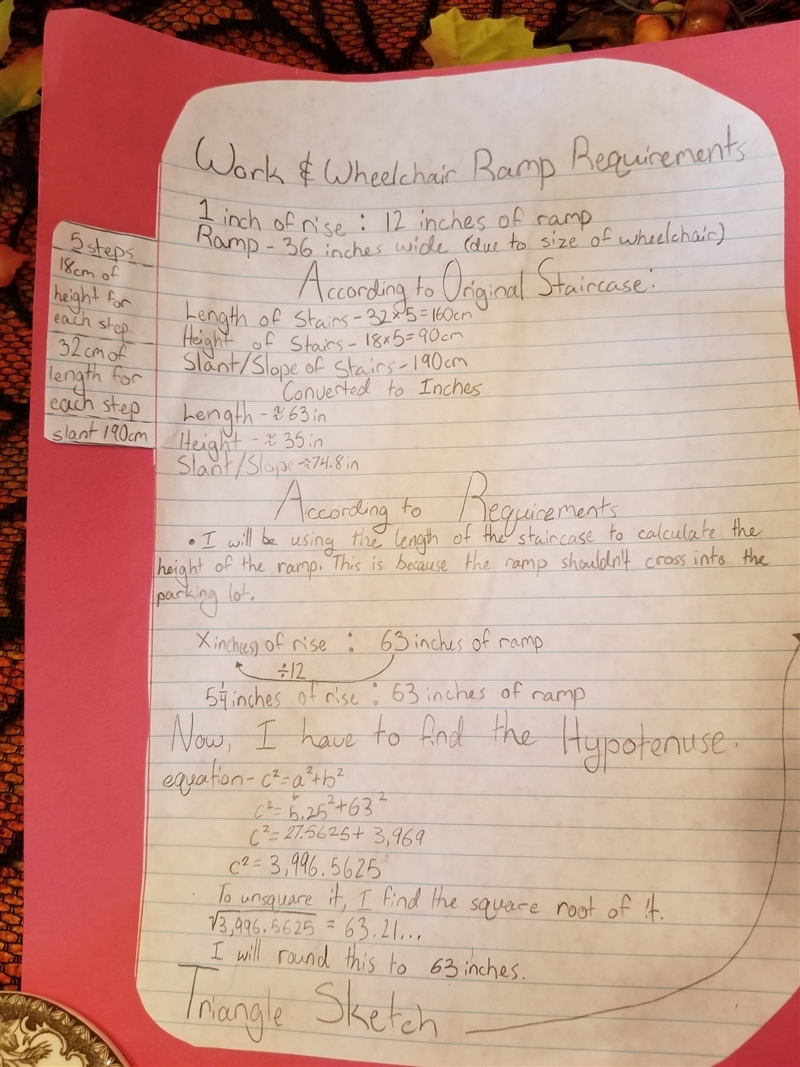 Work & Wheelchair Ramp Requirements
1 inch of rise : 12 inches of ramp
Ramp - 36 inches wide (due to size of wheelchair)
5 steps
18cm of
height for
each step.
32cm of
length for
each step
slant 190cm
According to Original Staircase:
Length of Stairs - 32×5=160cm
Height of Stairs - 18×5=90cm
Slant/Slope of Stairs - 190cm
Converted to Inches
Length - ≈63in
Height - ≈35in
Slant/Slope - ≈74.8in
According to Requirements
• I will be using the length of the staircase to calculate the
height of the ramp. This is because the ramp shouldn't cross into the
parking lot.
X inch(es) of rise : 63 inches of ramp
÷12
5 1/4 inches of rise : 63 inches of ramp
Now, I have to find the Hypotenuse.
equation - c²=a²+b²
c²=5.25²+63²
c²=27.5625+3,969
c²=3,996.5625
To unsquare it, I find the square root of it.
√3,996.5625 = 63.21...
I will round this to 63 inches.
Triangle Sketch